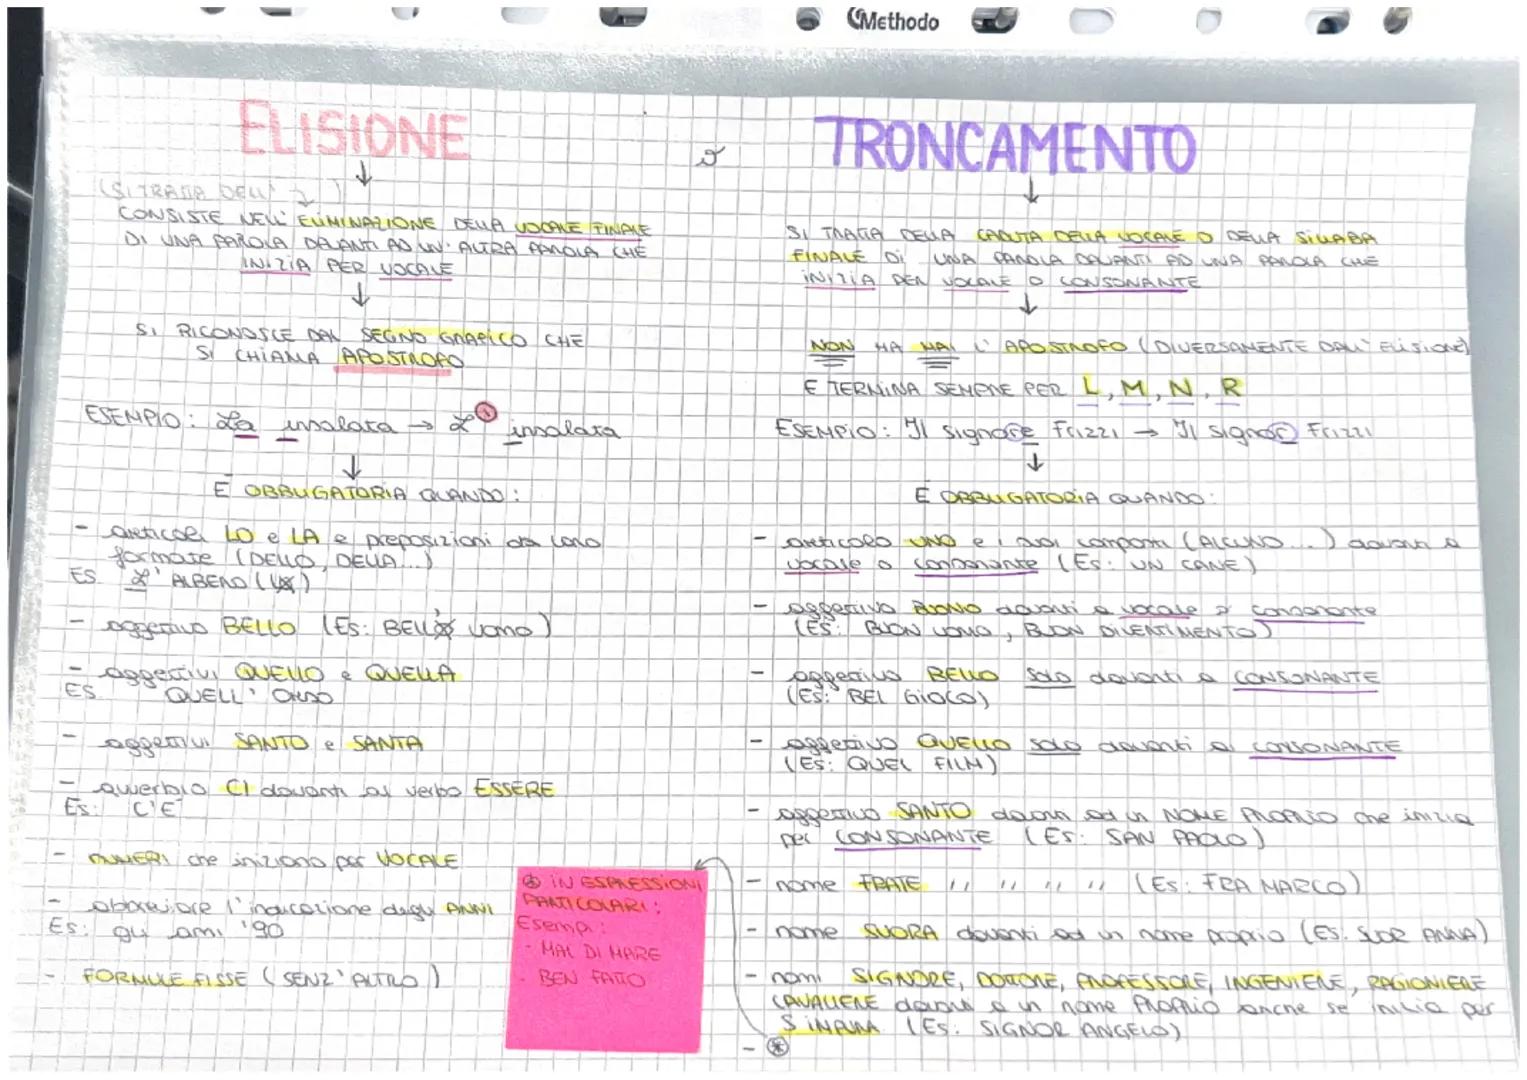 Methodo
ELISIONE
(SI TRATTA DELL' )
CONSISTE NELL' ELIMINAZIONE DELLA VOCALE FINALE
DI UNA PAROLA DAVANTI AD UN' ALTRA PAROLA CHE
INIZIA PER VOCALE
SI RICONOSCE DAL SEGNO GRAFICO CHE
SI CHIAMA APOSTROFO
ESEMPIO: La insalata → L' insalata
È OBBLIGATORIA QUANDO:
- articoli LO e LA e preposizioni da loro
formate (DELLO, DELLA...)
ES. L' ALBERO (LO)
- aggettivo BELLO (ES: BELL' uomo)
- aggettivi QUELLO e QUELLA
ES. QUELL' ORSO
- aggettivi SANTO e SANTA
- avverbio CI davanti al verbo ESSERE
ES: C'È
- NUMERI che iniziano per VOCALE
- abbreviare l'indicazione degli ANNI
ES: gli anni '90
- FORMULE FISSE (SENZ'ALTRO)
TRONCAMENTO
SI TRATTA DELLA CADUTA DELLA VOCALE O DELLA SILLABA
FINALE DI UNA PAROLA DAVANTI AD UNA PAROLA CHE
INIZIA PER VOCALE O CONSONANTE
NON HA MAI L'APOSTROFO (DIVERSAMENTE DALL'ELISIONE)
E TERMINA SEMPRE PER L, M, N, R
ESEMPIO: Il signore Frizzi → Il signor Frizzi
È OBBLIGATORIA QUANDO:
- articolo UNO e i suoi composti (ALCUNO...) davanti a
vocale o consonante (ES: UN CANE)
- aggettivo BUONO davanti a vocale e consonante
(ES: BUON UOMO, BUON DIVERTIMENTO)
- aggettivo BELLO solo davanti a CONSONANTE
(ES: BEL GIOCO)
- aggettivo QUELLO solo davanti a CONSONANTE
(ES: QUEL FILM)
- aggettivo SANTO davanti ad un NOME PROPRIO che inizia
per CONSONANTE (ES: SAN PAOLO)
- nome FRATE " " " " (ES: FRA MARCO)
- nome SUORA davanti ad un nome proprio (ES. SUOR ANNA)
- nomi SIGNORE, DOTTORE, PROFESSORE, INGENIERE, RAGIONIERE
CAVALIERE davanti a un nome PROPRIO anche se inizia per
S IMPURA (ES. SIGNOR ANGELO)
- *
* IN ESPRESSIONI
PARTICOLARI:
Esempi:
- MAL DI MARE
- BEN FATTO